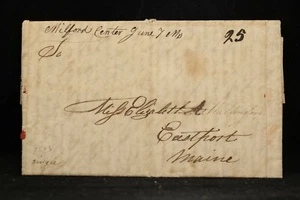 Milford Center June 7
25
To
Miss Elizabeth A
Eastport
Maine